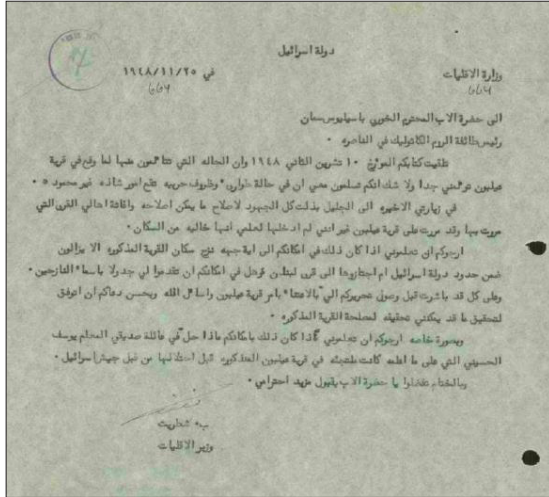 دولة اسرائيل
وزارة الاقليات
في ١٩٤٨/١١/٢٥
664
664
الى حضرة الاب المحترم الخوري باسيليوس سمان
رئيس طائفة الروم الكاثوليك في الناصره ٠
تلقيت كتابكم المؤرخ ١٠ تشرين الثاني ١٩٤٨ وان الحاله التي تتألمون منها لما وقع في قرية
عيلبون تؤلمني جدا ولا شك انكم تسلمون معي ان في حالة طوارئ وظروف حربيه تقع امور شاذه غير محموده ٠
في زيارتي الاخيره الى الجليل بذلت كل الجهود لاصلاح ما يمكن اصلاحه واغاثة اهالي القرى التي
مررت بها وقد مررت على قرية عيلبون غير انني لم ادخلها لعلمي انها خاليه من السكان ٠
ارجوكم ان تعلموني اذا كان ذلك في امكانكم الى اية جهه نزح سكان القرية المذكوره الا يزالون
ضمن حدود دولة اسرائيل ام اجتازوها الى قرى لبنان وهل في امكانكم ان تقدموا لي جدولا باسماء النازحين ٠
وعلى كل قد باشرت قبل وصول تحريركم الي بالاعتناء بامر قرية عيلبون واسأل الله وبحسن دعاكم ان اتوفق
لتحقيق ما قد يمكنني تحقيقه لمصلحة القرية المذكوره ٠
وبصورة خاصه ارجوكم ان تعلموني اذا كان ذلك بامكانكم ماذا حل في عائلة صديقي المعلم يوسف
الحسيني التي على ما اعلم كانت ملتجئه في قرية عيلبون المذكوره قبل احتلالها من قبل جيش اسرائيل ٠
وبالختام تفضلوا يا حضرة الاب بقبول مزيد احترامي ٠
شطريت
وزير الاقليات